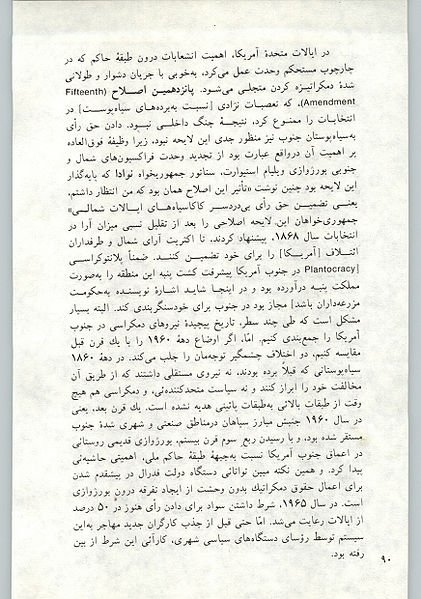 در ایالات متحدهٔ آمریکا، اهمیت انشعابات درون طبقهٔ حاکم که در
چارچوب مستحکم وحدت عمل می‌کرد، به‌خوبی با جریان دشوار و طولانی
شدهٔ دمکراتیزه کردن متجلی می‌شود. پانزدهمین اصلاح (Fifteenth
Amendment)، که تعصبات نژادی [نسبت به‌برده‌های سیاه‌پوست] در
انتخابات را ممنوع کرد، نتیجهٔ جنگ داخلی نبود. دادن حق رأی
به‌سیاه‌پوستان جنوب نیز منظور جدی این لایحه نبود، زیرا وظیفهٔ فوق‌العاده
پر اهمیت آن درواقع عبارت بود از تجدید وحدت فراکسیون‌های شمال و
جنوبی بورژوازی ویلیام استیوارت، سناتور جمهوریخواه نوادا که پایه‌گذار
این لایحه بود چنین نوشت «تأثیر این اصلاح همان بود که من انتظار داشتم،
یعنی تضمین حق رأی بی‌دردسر کاکاسیاه‌های ایالات شمالی»
جمهوری‌خواهان این لایحه اصلاحی را بعد از تقلیل نسبی میزان آرا در
انتخابات سال ۱۸۶۸، پیشنهاد کردند، تا اکثریت آرای شمال و طرفداران
ائتلاف [آمریکا] را برای خود تضمین کنند. ضمناً پلانتوکراسی
[Plantocracy در جنوب آمریکا پیشرفت کشت پنبه این منطقه را به‌صورت
مملکت پنبه درآورده بود و در اینجا شاید اشارهٔ نویسنده به‌حکومت
مزرعه‌داران باشد] مجاز بود در جنوب برای خودسنگربندی کند. البته بسیار
مشکل است که طی چند سطر، تاریخ پیچیدهٔ نیروهای دمکراسی در جنوب
آمریکا را جمع‌بندی کنیم. امّا، اگر اوضاع دههٔ ۱۹۶۰ را با یك قرن قبل
مقایسه کنیم، دو اختلاف چشمگیر توجه‌مان را جلب می‌کند. در دههٔ ۱۸۶۰
سیاه‌پوستانی که قبلاً برده بودند، نه نیروی مستقلی داشتند که از طریق آن
مخالفت خود را ابراز کنند و نه سیاست متحدکننده‌ئی، و دمکراسی هم هیچ
وقت از طبقات بالائی به‌طبقات پائینی هدیه نشده است. یك قرن بعد، یعنی
در سال ۱۹۶۰ جنبش مبارز سیاهان درمناطق صنعتی و شهری شدهٔ جنوب
مستقر شده بود، و با رسیدن ربع سوم قرن بیستم، بورژوازی قدیمی روستائی
در اعماق جنوب آمریکا نسبت به‌جبههٔ طبقهٔ حاکم ملی، اهمیتی حاشیه‌ئی
پیدا کرد. و همین نکته مبین توانائی دستگاه دولت فدرال در پیشقدم شدن
برای اعمال حقوق دمکراتیك بدون وحشت از ایجاد تفرقه درون بورژوازی
است. در سال ۱۹۶۵، شرط داشتن سواد برای دادن رأی هنوز در ۵۰ درصد
از ایالات رعایت می‌شد. امّا حتی قبل از جذب کارگران جدید مهاجر به‌این
سیستم توسط رؤسای دستگاه‌های سیاسی شهری، کارآئی این شرط از بین
رفته بود.
۹۰